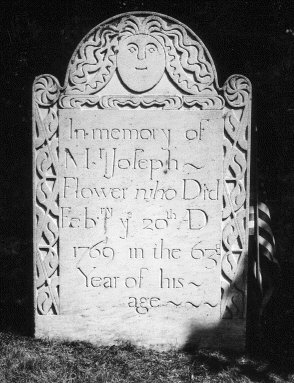 In memory of
Mr Joseph ~
Flower who Did
Feb:ry ye 20th AD
1769 in the 63d
Year of his ~
age ~ ~ ~